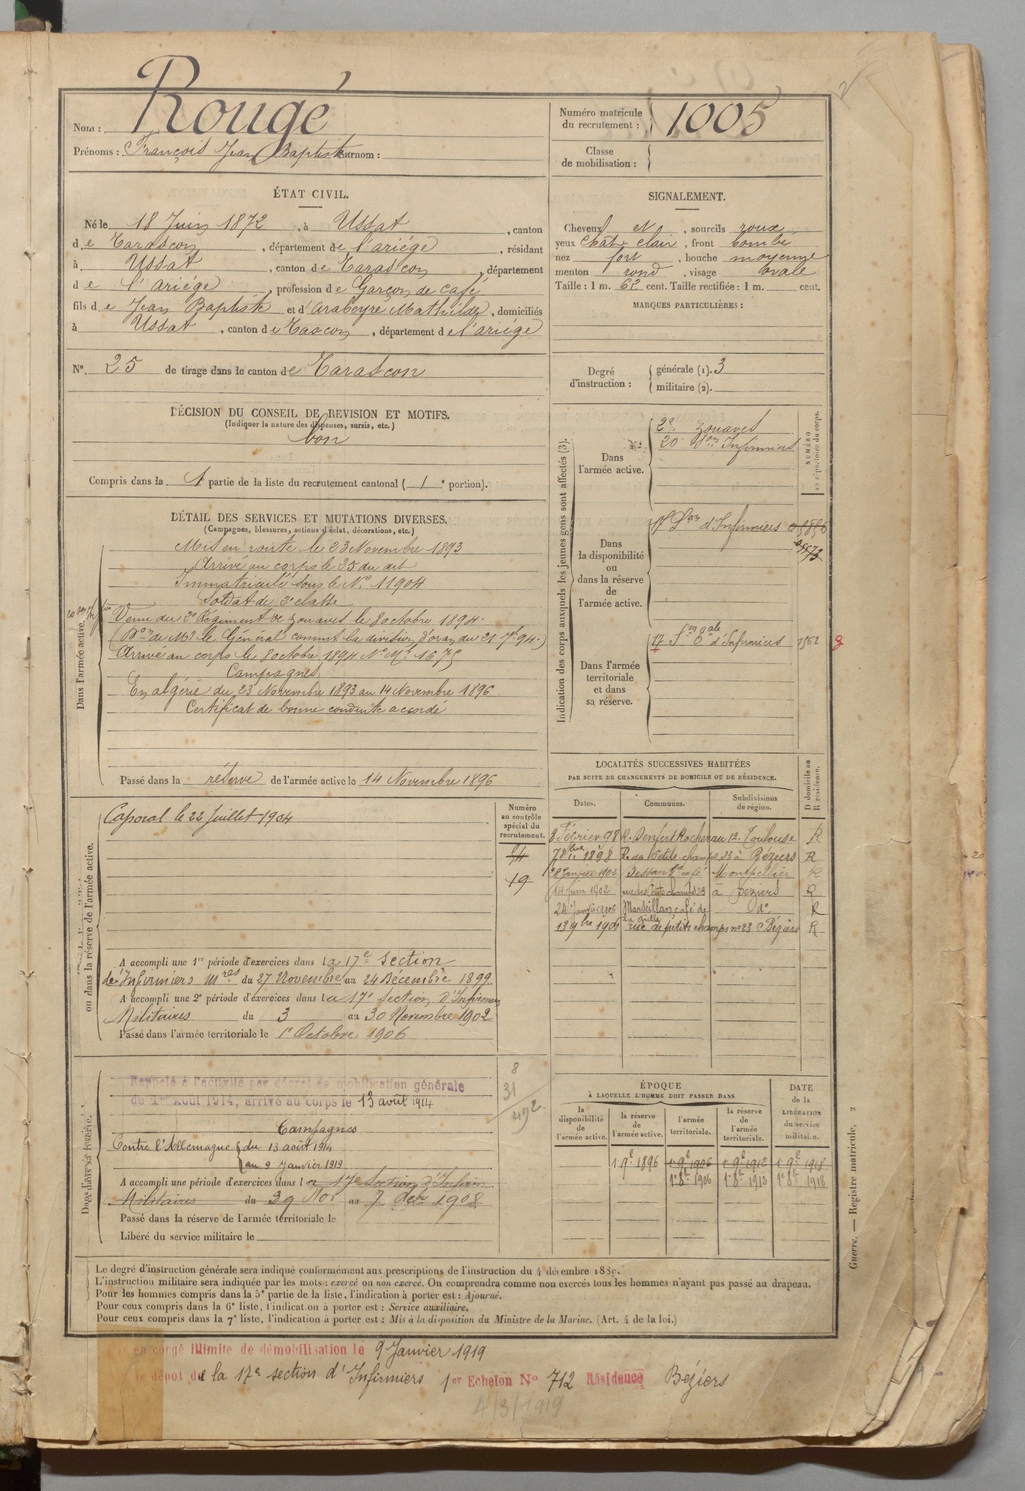 Nom : Rougé
Prénoms : François Jean Baptiste Surnom :
Numéro matricule du recrutement : 1005
Classe de mobilisation :
ÉTAT CIVIL.
Né le 18 Juin 1872, à Ussat, canton
de Tarascon, département de l'ariége, résidant
à Ussat, canton de Tarascon, département
de l'ariége, profession de Garçon de café
fils de Jean Baptiste et d'Arabeyre Mathilde, domiciliés
à Ussat, canton de Tascon, département de l'ariége
N° 25 de tirage dans le canton de Tarascon
SIGNALEMENT.
Cheveux et, sourcils roux
yeux chât. clair, front bombé
nez fort, bouche moyenne
menton rond, visage ovale
Taille : 1 m. 62 cent. Taille rectifiée : 1 m. cent.
MARQUES PARTICULIÈRES :
Degré d'instruction : générale (1). 3
militaire (2).
DÉCISION DU CONSEIL DE REVISION ET MOTIFS.
(Indiquer la nature des dispenses, sursis, etc.)
bon
Compris dans la 1 partie de la liste du recrutement cantonal (1e portion).
DÉTAIL DES SERVICES ET MUTATIONS DIVERSES.
(Campagnes, blessures, actions d'éclat, décorations, etc.)
Dans l'armée active.
Mis en route le 23 Novembre 1893
Arrivé au corps le 25 du dit
Immatriculé sous le N° 11904
Soldat de 2e classe
Venu du 2e Régiment de Zouaves le 8 octobre 1894.
Arrivé au corps le 8 octobre 1894 N° Mle 1675
Campagnes
En algérie du 23 Novembre 1893 au 14 Novembre 1896
Certificat de bonne conduite accordé
Passé dans la réserve de l'armée active le 14 Novembre 1896
Indication des corps auxquels les jeunes gens sont affectés (3).
NUMÉRO
Dans l'armée active.
2e Zouaves
20 Son Infirmiers
Dans la disponibilité ou dans la réserve de l'armée active.
17e Son d'Infirmiers
Dans l'armée territoriale et dans sa réserve.
17 Son d'Infirmiers 1562 8
LOCALITÉS SUCCESSIVES HABITÉES
PAR SUITE DE CHANGEMENTS DE DOMICILE OU DE RÉSIDENCE.
Dates. Communes. Subdivisions de région. D domicile ou R résidence.
8 Février 98 R. Denfert Rochereau 12. Toulouse R
7 8bre 1898 R. des Petits champs 23 à Béziers R
Janvier 1902 café Montpellier R
14 Juin 1902 23 à Béziers R
24 Janvier 1906 Marseillan café de la grille do R
13 9bre 1906 rue de petits champs no 23 Béziers R
ou dans la réserve de l'armée active.
Numéro au contrôle spécial du recrutement.
Caporal le 22 Juillet 1904
19
A accompli une 1re période d'exercices dans la 17e Section
de Infirmiers Mres du 27 Novembre au 24 Décembre 1899
A accompli une 2e période d'exercices dans la 17e section d'Infirmiers
Militaires du 3 au 30 Novembre 1902
Passé dans l'armée territoriale le 1er Octobre 1906
8
31
492
Rappelé à l'activité par décret de mobilisation générale
du 1er Août 1914, arrivé au corps le 13 août 1914
Campagnes
Contre l'Allemagne du 13 août 1914
au 9 Janvier 1919
A accompli une période d'exercices dans la 17e Section d'Infirm
Militaires du 29 Nov au 7 Dcbr 1908
Passé dans la réserve de l'armée territoriale le
Libéré du service militaire le
ÉPOQUE
À LAQUELLE L'HOMME DOIT PASSER DANS
DATE de la LIBÉRATION du service militaire.
la disponibilité de l'armée active. la réserve de l'armée active. l'armée territoriale. la réserve de l'armée territoriale.
1 9e 1896 1 9e 1906 1 9e 1912 1 9e 1918
1er 8e 1906 1er 8e 1913 1er 8e 1918
Le degré d'instruction générale sera indiqué conformément aux prescriptions de l'instruction du 4 décembre 1889.
L'instruction militaire sera indiquée par les mots : exercé ou non exercé. On comprendra comme non exercés tous les hommes n'ayant pas passé au drapeau.
Pour les hommes compris dans la 5e partie de la liste, l'indication à porter est : Ajourné.
Pour ceux compris dans la 6e liste, l'indication à porter est : Service auxiliaire.
Pour ceux compris dans la 7e liste, l'indication à porter est : Mis à la disposition du Ministre de la Marine. (Art. 4 de la loi.)
Guerre. — Registre matricule. 2
en congé illimité de démobilisation le 9 Janvier 1919
dépôt de la 17e section d'Infirmiers 1er Echelon N° 712 Résidence Béziers
4/3/1919